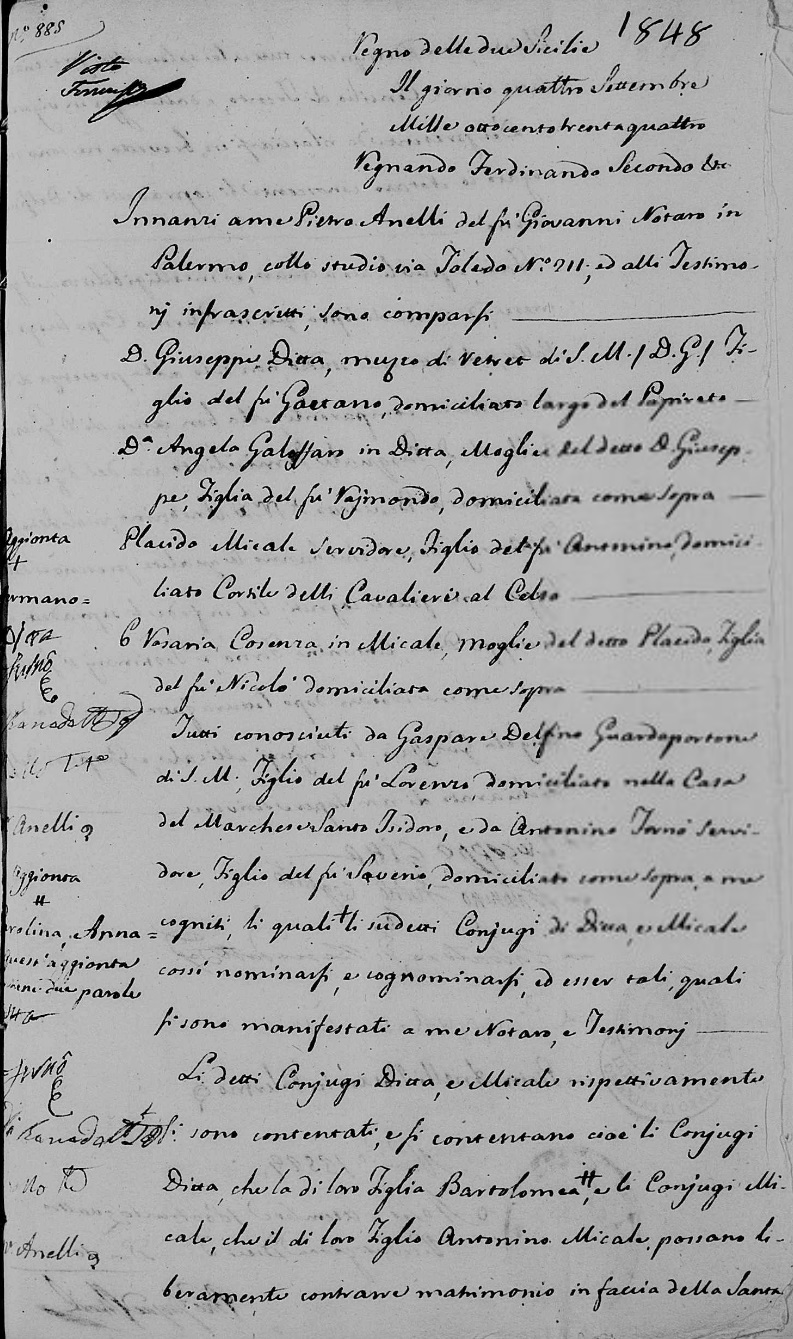 N.° 885
1848
Visto
Regno delle due Sicilie
Il giorno quattro Settembre
Mille ottocentotrentaquattro
Regnando Ferdinando Secondo &c
Innanzi a me Pietro Anelli del fù Giovanni Notaro in
Palermo, collo studio via Toledo N.° 211, ed alli Testimo-
nj infrascritti, sono comparsi
D. Giuseppe Ditta, di S. M. / D. G. / Fi-
glio del fù Gaetano, domiciliato largo del Papireto
D.a Angela Galoffaro in Ditta, Moglie del detto D. Giusep-
pe, Figlia del fù Rajmondo, domiciliata come sopra
Placido Micale Servidore, Figlio del fù Antonino, domici-
liato Cortile delli Cavalieri al Celso
E Rosaria Cosenza in Micale, moglie del detto Placido, Figlia
del fù Nicolò domiciliata come sopra
Tutti conosciuti da Gaspare Delfino Guardaportone
di S. M., Figlio del fù Lorenzo, domiciliato nella Casa
del Marchese Santo Isidoro, e da Antonino Tornò Servi-
dore, Figlio del fù Saverio, domiciliato come sopra, a me
cogniti, li quali + li sudetti Conjugi di Ditta, e Micale
cossì nominarsi, e cognominarsi, ed esser tali, quali
si sono manifestati a me Notaro, e Testimonj
Li detti Conjugi Ditta, e Micale rispettivamente
si sono contentati, e si contentano cioè li Conjugi
Ditta, che la di loro Figlia Bartolomea #, e li Conjugi Mi-
cale, che il di loro Figlio Antonino Micale, possano li-
beramente contrarre matrimonio in faccia della Santa
Aggionta
+
ermano=
Ditta
Anelli
Aggionta
#
arolina, e Anna=
quest'aggionta
viene due parole
Anelli